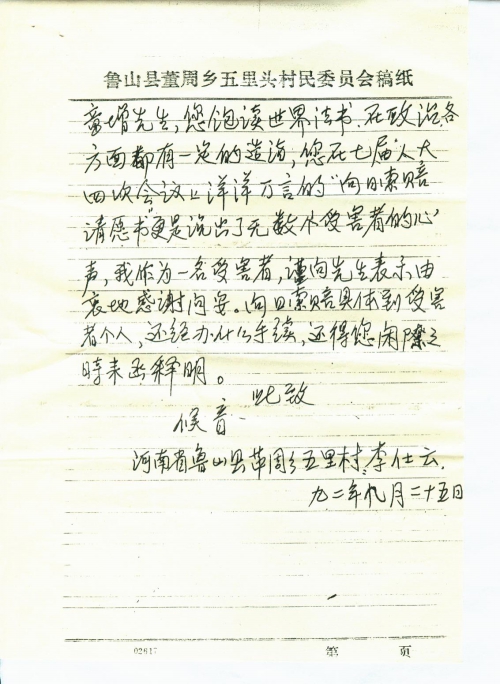 鲁山县董周乡五里头村民委员会稿纸
童增先生，您饱读世界法书、在政治各
方面都有一定的造诣，您在七届人大
四次会议上洋洋万言的“向日索赔
请愿书”更是说出了无数个受害者的心
声，我作为一名受害者，谨向先生表示由
衷地感谢问安。向日索赔具体到受害
者个人，还经办什么手续，还得您闲隙之
時来函释明。
此致
候音
河南省鲁山县董周乡五里村，李仕云，
九二年九月二十五日
02617
第 页